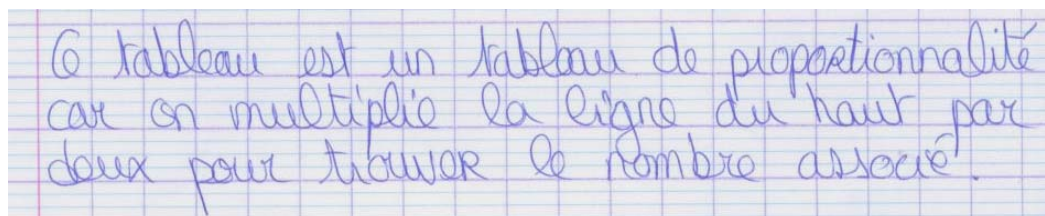 Ce tableau est un tableau de proportionnalité
car on multiplie la ligne du haut par
deux pour trouver le nombre associé.